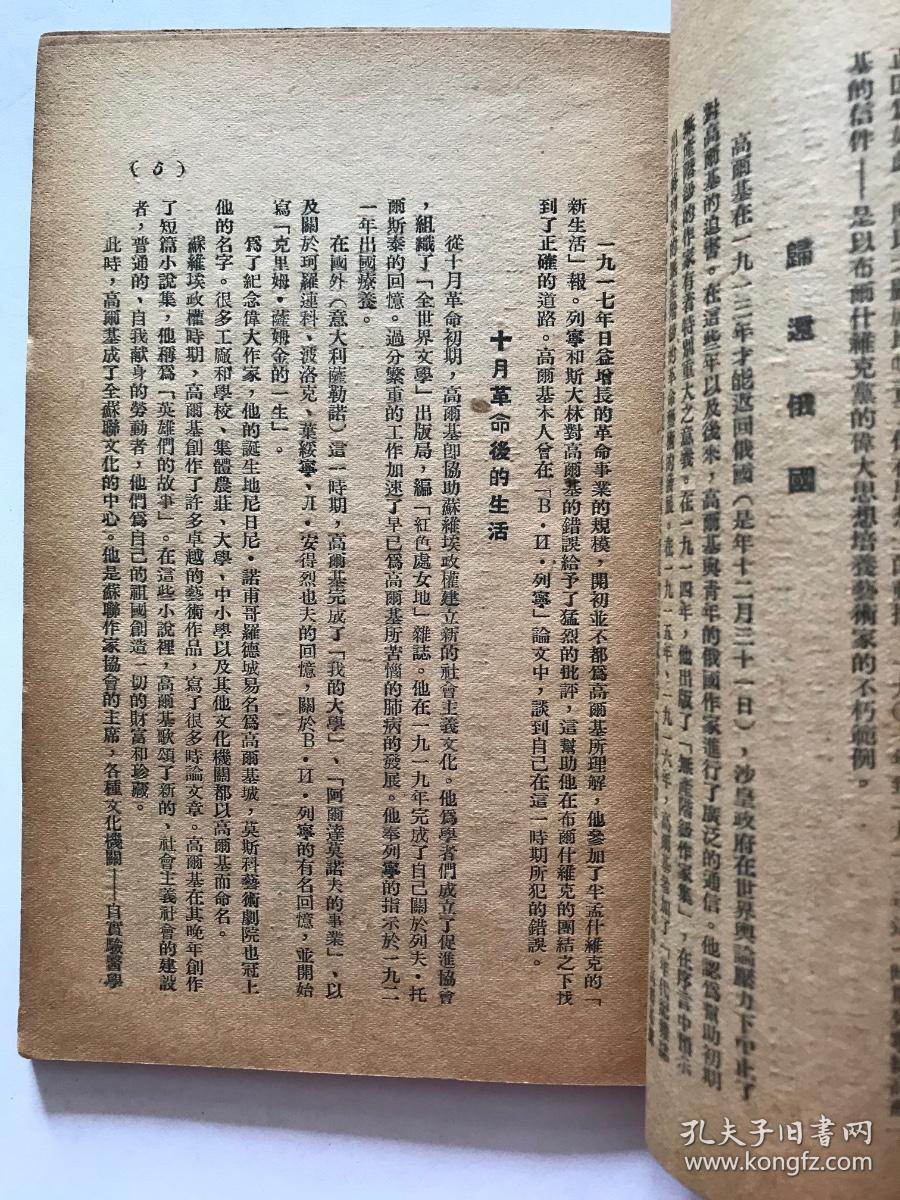 基的信件——是以布爾什維克黨的偉大思想培養藝術家的不朽範例。
歸還俄國
高爾基在一九一三年才能返回俄國（是年十二月三十一日），沙皇政府在世界輿論壓力下中止了
對高爾基的迫害。在這些年以及後來，高爾基與青年的俄國作家進行了廣泛的通信。他認爲幫助初期
無產階級的作家有着特別重大之意義。在一九一四年，他出版了「無產階級作家集」，在序言中預示
一九一七年日益增長的革命事業的規模，開初並不都爲高爾基所理解，他參加了半孟什維克的「
新生活」報。列寧和斯大林對高爾基的錯誤給予了猛烈的批評，這幫助他在布爾什維克的團結之下找
到了正確的道路。高爾基本人曾在「B·И·列寧」論文中，談到自己在這一時期所犯的錯誤。
十月革命後的生活
從十月革命初期，高爾基卽協助蘇維埃政權建立新的社會主義文化。他爲學者們成立了促進協會
，組織了「全世界文學」出版局，編「紅色處女地」雜誌。他在一九一九年完成了自己關於列夫·托
爾斯泰的回憶。過分繁重的工作加速了早已爲高爾基所苦惱的肺病的發展。他奉列寧的指示於一九二
一年出國療養。
在國外（意大利薩勒諾）這一時期，高爾基完成了「我的大學」、「阿爾達莫諾夫的事業」、以
及關於珂羅連科、波洛克、葉綏寧、Л·安得烈也夫的回憶，關於B·И·列寧的有名回憶，並開始
寫「克里姆·薩姆金的一生」。
爲了紀念偉大作家，他的誕生地尼日尼·諾甫哥羅德城易名爲高爾基城，莫斯科藝術劇院也冠上
他的名字。很多工廠和學校、集體農莊、大學、中小學以及其他文化機關都以高爾基而命名。
蘇維埃政權時期，高爾基創作了許多卓越的藝術作品，寫了很多時論文章。高爾基在其晚年創作
了短篇小說集，他稱爲「英雄們的故事」。在這些小說裡，高爾基歌頌了新的、社會主義社會的建設
者，普通的、自我献身的勞動者，他們爲自己的祖國創造一切的財富和珍藏。
此時，高爾基成了全蘇聯文化的中心。他是蘇聯作家協會的主席，各種文化機關——自實驗醫學
（5）
孔夫子旧书网
www.kongfz.com